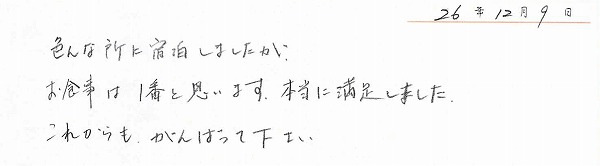 26年12月9日
色んな所に宿泊しましたが、
お食事は1番と思います。本当に満足しました。
これからも、がんばって下さい